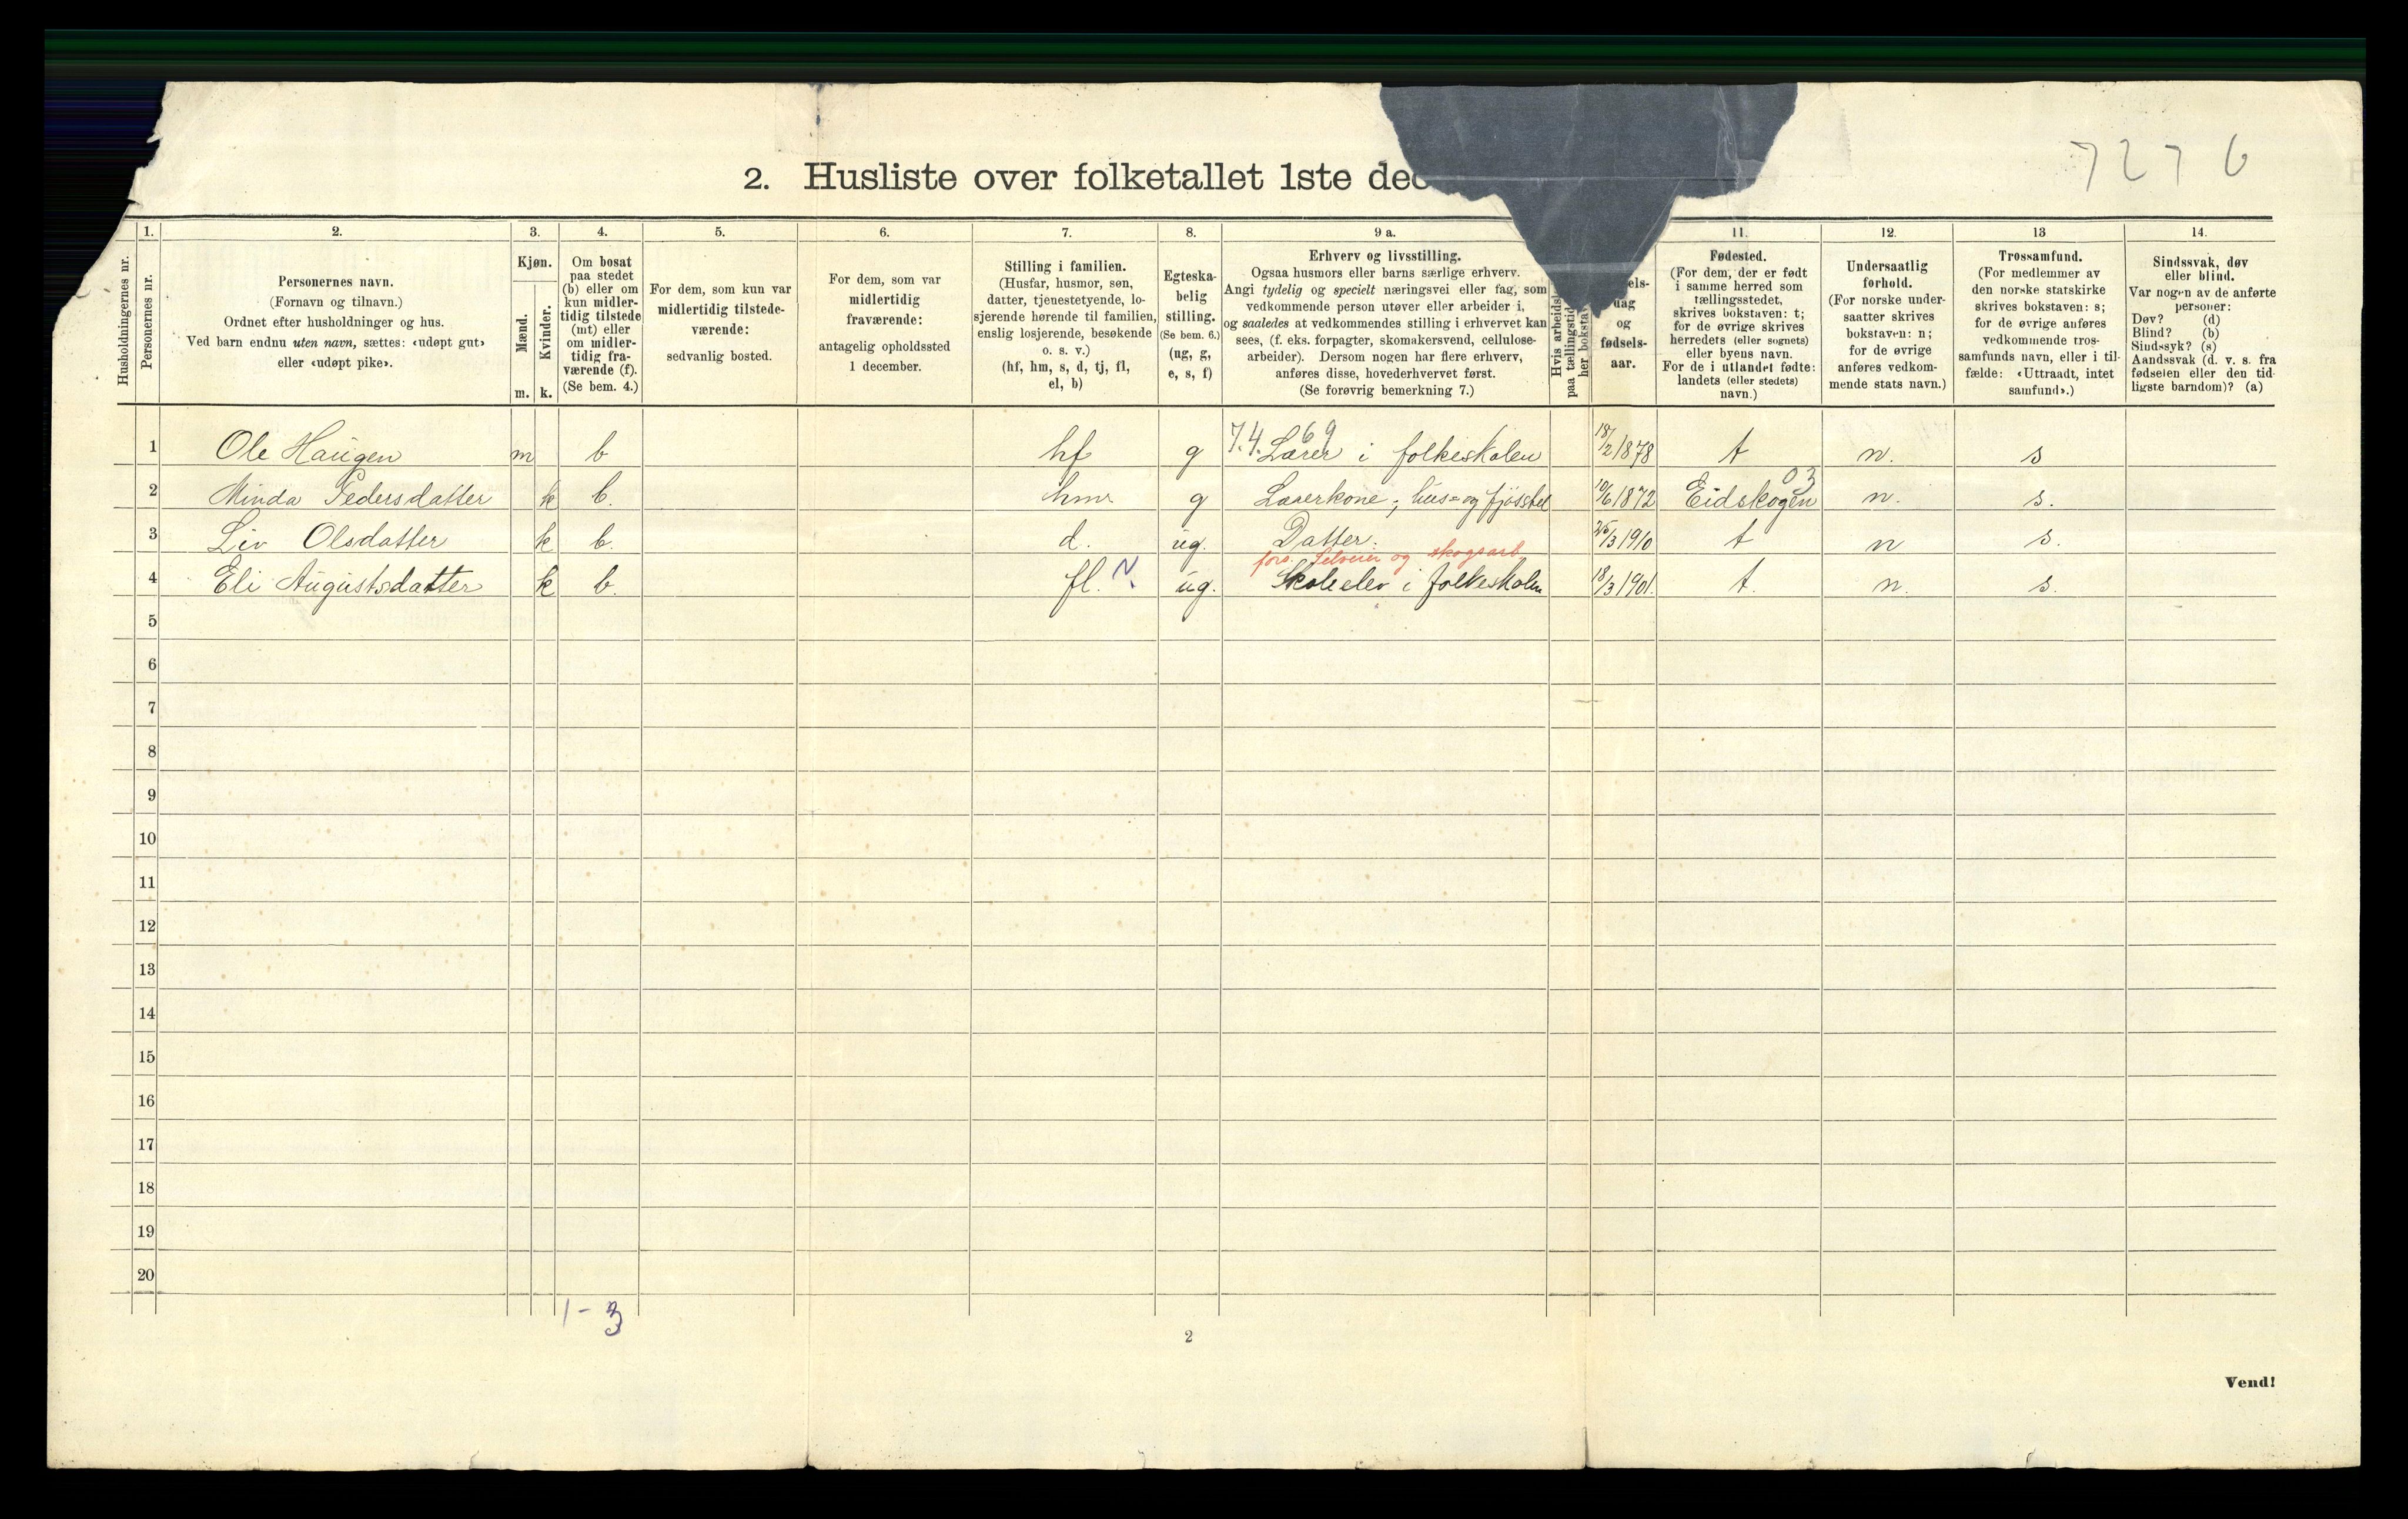 7276
2. Husliste over folketallet 1ste dec
1. 2. 3. 4. 5. 6. 7. 8. 9 a. 11. 12. 13 14.
Husholdningernes nr.
Personernes nr.
Personernes navn.
(Fornavn og tilnavn.)
Ordnet efter husholdninger og hus.
Ved barn endnu uten navn, sættes: «udøpt gut»
eller «udøpt pike».
Kjøn.
Mænd.
Kvinder.
m. k.
Om bosat
paa stedet
(b) eller om
kun midler-
tidig tilstede
(mt) eller
om midler-
tidig fra-
værende (f).
(Se bem. 4.)
For dem, som kun var
midlertidig tilstede-
værende:
sedvanlig bosted.
For dem, som var
midlertidig
fraværende:
antagelig opholdssted
1 december.
Stilling i familien.
(Husfar, husmor, søn,
datter, tjenestetyende, lo-
sjerende hørende til familien,
enslig losjerende, besøkende
o. s. v.)
(hf, hm, s, d, tj, fl,
el, b)
Egteska-
belig
stilling.
(Se bem. 6.)
(ug, g,
e, s, f)
Erhverv og livsstilling.
Ogsaa husmors eller barns særlige erhverv.
Angi tydelig og specielt næringsvei eller fag, som
vedkommende person utøver eller arbeider i,
og saaledes at vedkommendes stilling i erhvervet kan
sees, (f. eks. forpagter, skomakersvend, cellulose-
arbeider). Dersom nogen har flere erhverv,
anføres disse, hovederhvervet først.
(Se forøvrig bemerkning 7.)
Hvis arbeids
paa tællingstid
her bokstav
els-
dag
og
fødsels-
aar.
Fødested.
(For dem, der er født
i samme herred som
tællingsstedet,
skrives bokstaven: t;
for de øvrige skrives
herredets (eller sognets)
eller byens navn.
For de i utlandet fødte:
landets (eller stedets)
navn.)
Undersaatlig
forhold.
(For norske under-
saatter skrives
bokstaven: n;
for de øvrige
anføres vedkom-
mende stats navn.)
Trossamfund.
(For medlemmer av
den norske statskirke
skrives bokstaven: s;
for de øvrige anføres
vedkommende tros-
samfunds navn, eller i til-
fælde: «Uttraadt, intet
samfund».)
Sindssvak, døv
eller blind.
Var nogen av de anførte
personer:
Døv? (d)
Blind? (b)
Sindssyk? (s)
Aandssvak (d. v. s. fra
fødselen eller den tid-
ligste barndom)? (a)
7.4. 69
1 Ole Haugen m b hf g Lærer i folkeskolen 18/2 1878 t n. s
03
2 Minda Pedersdatter k b. hm g Lærerkone; hus= og fjøsstel 10/6 1872 Eidskogen n. s.
3 Liv Olsdatter k b. d. ug. Datter. 25/3 1910 t n s.
fors. Selveier og skogsarb
4 Eli Augustsdatter k b. fl. N. ug. Skoleelev i folkeskolen 18/3 1901. t. n. s.
5
6
7
8
9
10
11
12
13
14
15
16
17
18
19
20
1 - 3
2
Vend!